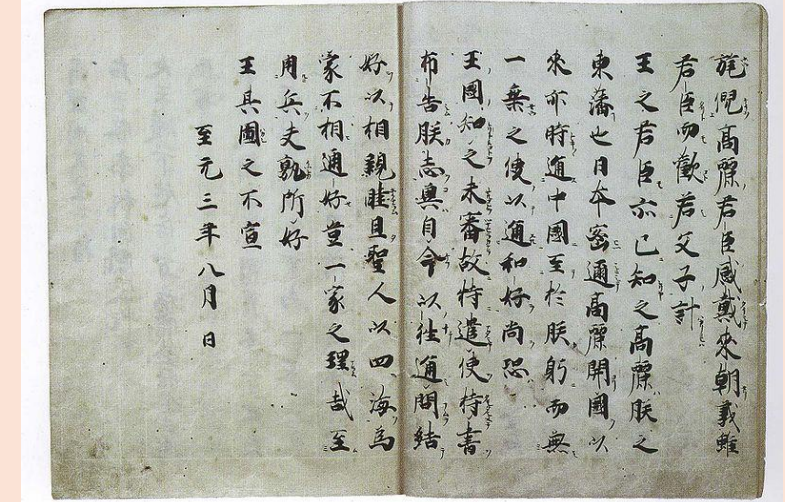 旄倪高麗君臣感戴来朝義雖
君臣而歡若父子計
王之君臣亦已知之高麗朕之
東藩也日本密邇高麗開國以
来亦時通中國至於朕躬而無
一乗之使以通和好尚恐
王國知之未審故特遣使持書
布告朕志冀自今以往通問結
好以相親睦且聖人以四海為
家不相通好豈一家之理哉至
用兵夫孰所好
王其圖之不宣
至元三年八月 日